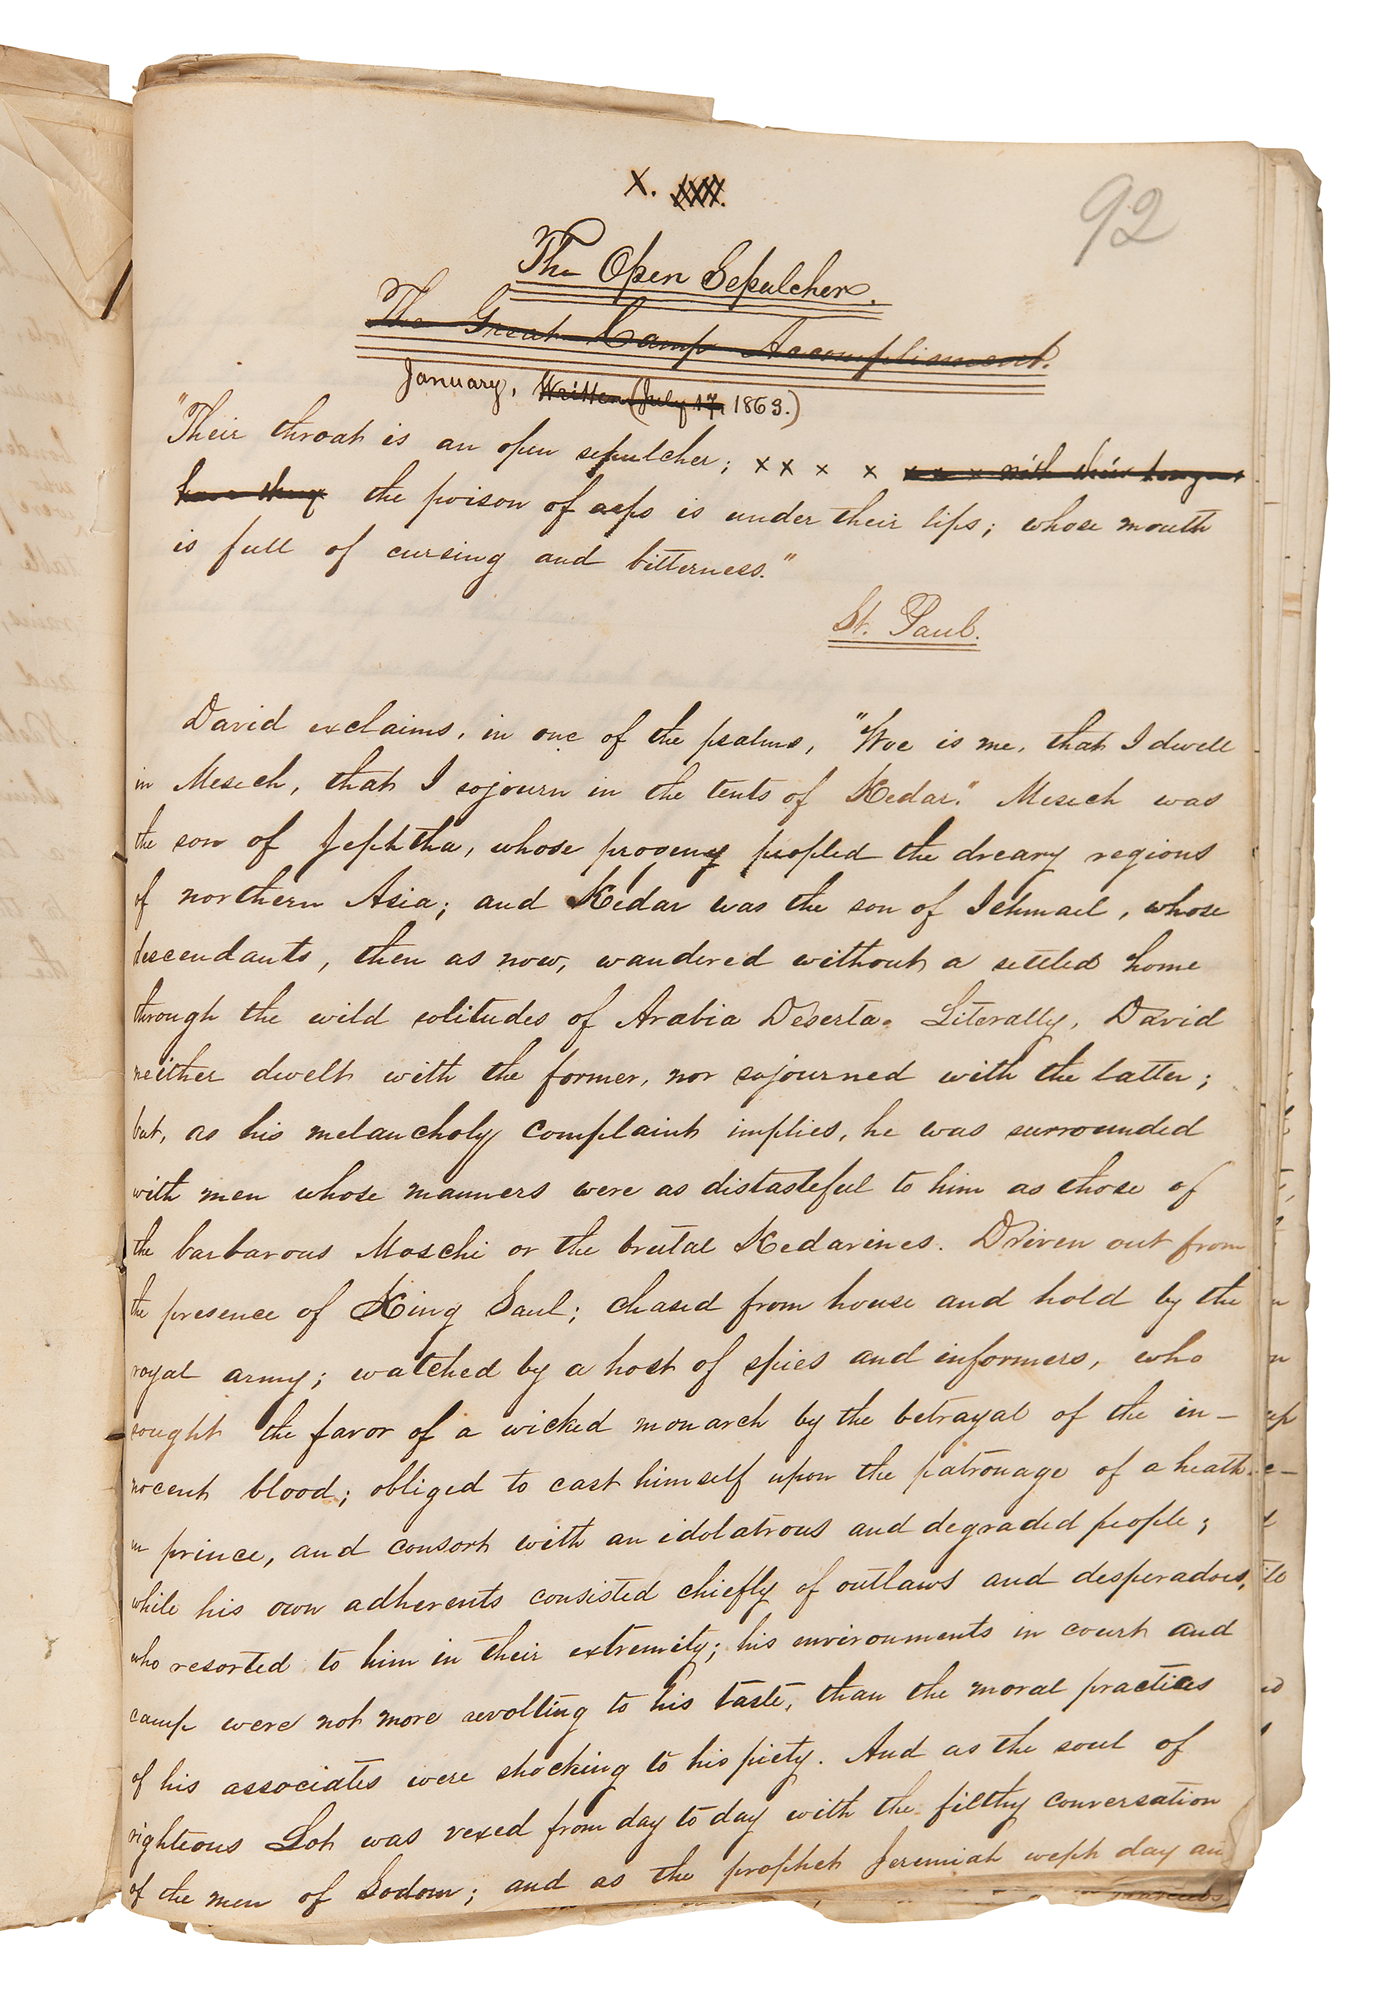 X.
92
The Open Sepulcher.
The Great Camp Accomplisment.
January, Written (July 17, 1863.)
"Their throat is an open sepulcher; x x x x x x x with their tongues
have they the poison of asps is under their lips; whose mouth
is full of cursing and bitterness."
St. Paul.
David exclaims, in one of the psalms, "Woe is me, that I dwell
in Mesech, that I sojourn in the tents of Kedar." Mesech was
the son of Jephtha, whose progeny peopled the dreary regions
of northern Asia; and Kedar was the son of Ishmael, whose
descendants, then as now, wandered without a settled home
through the wild solitudes of Arabia Deserta. Literally, David
neither dwelt with the former, nor sojourned with the latter;
but, as his melancholy complaint implies, he was surrounded
with men whose manners were as distasteful to him as those of
the barbarous Moschi or the brutal Kedarines. Driven out from
the presence of King Saul; chased from house and hold by the
royal army; watched by a host of spies and informers, who
sought the favor of a wicked monarch by the betrayal of the in-
nocent blood; obliged to cast himself upon the patronage of a heath-
en prince, and consort with an idolatrous and degraded people;
while his own adherents consisted chiefly of outlaws and desperadoes,
who resorted to him in their extremity; his environments in court and
camp were not more revolting to his taste, than the moral practices
of his associates were shocking to his piety. And as the soul of
righteous Lot was vexed from day to day with the filthy conversation
of the men of Sodom; and as the prophet Jeremiah wept day an